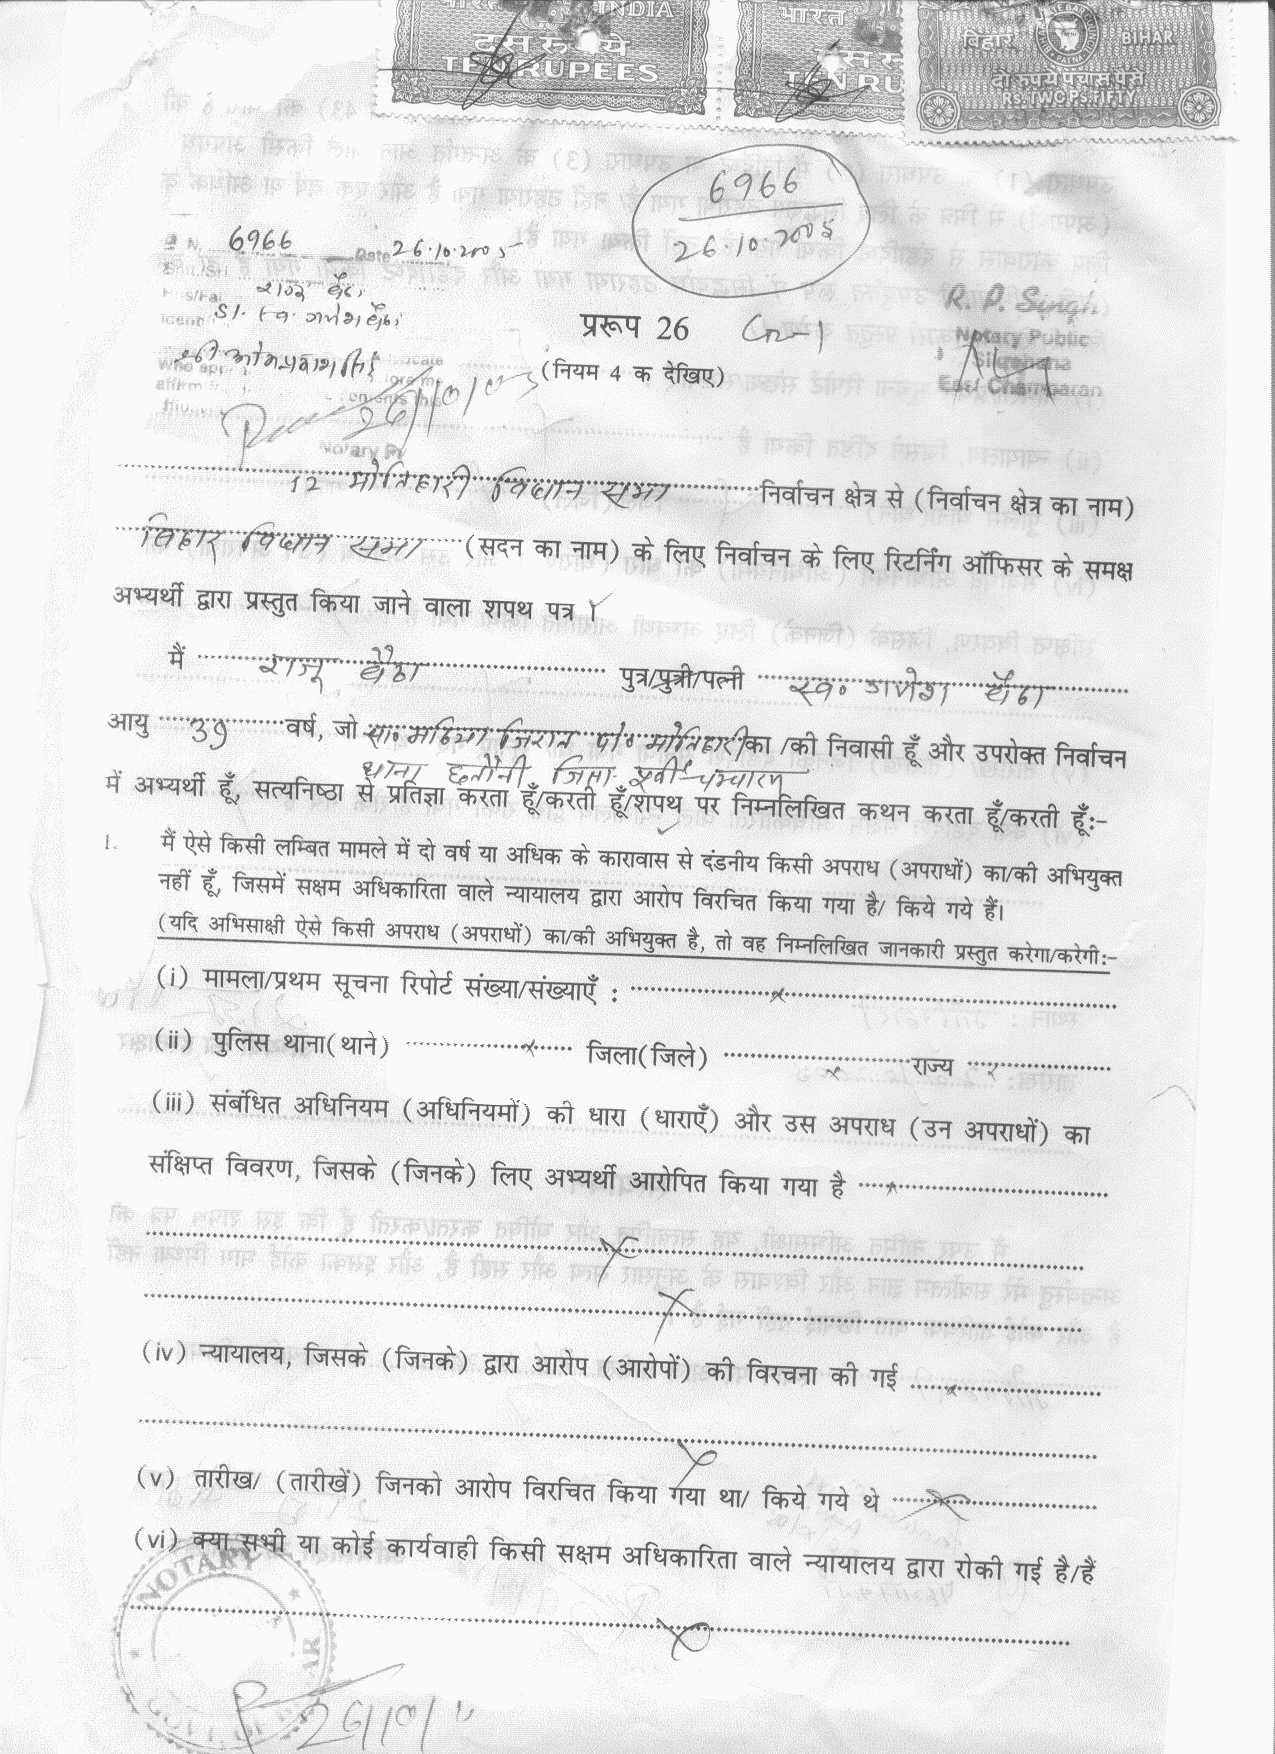 भारत INDIA
दस रुपये
TEN RUPEES
भारत
दस रु
TEN RU
बिहार BIHAR
दो रुपये पचास पैसे
Rs. TWO Ps. FIFTY
6966
26.10.2005
6966 Date 26.10.2005
राजू बैठा
S/. स्व. गणेश बैठा
श्री ओमप्रकाश सिंह
R. P. Singh
Notary Public
East Champaran
प्ररूप 26
(नियम 4 क देखिए)
26/10/05
Notary
12 मोतिहारी विधान सभा निर्वाचन क्षेत्र से (निर्वाचन क्षेत्र का नाम)
बिहार विधान सभा (सदन का नाम) के लिए निर्वाचन के लिए रिटर्निंग ऑफिसर के समक्ष
अभ्यर्थी द्वारा प्रस्तुत किया जाने वाला शपथ पत्र ।
मैं राजू बैठा पुत्र/पुत्री/पत्नी स्व. गणेश बैठा
आयु 39 वर्ष, जो सा. मठिया जिरात पो. मोतिहारी का /की निवासी हूँ और उपरोक्त निर्वाचन
थाना छतौनी जिला- पूर्वी चम्पारण
में अभ्यर्थी हूँ, सत्यनिष्ठा से प्रतिज्ञा करता हूँ/करती हूँ/शपथ पर निम्नलिखित कथन करता हूँ/करती हूँ:-
1. मैं ऐसे किसी लम्बित मामले में दो वर्ष या अधिक के कारावास से दंडनीय किसी अपराध (अपराधों) का/की अभियुक्त
नहीं हूँ, जिसमें सक्षम अधिकारिता वाले न्यायालय द्वारा आरोप विरचित किया गया है/ किये गये हैं।
(यदि अभिसाक्षी ऐसे किसी अपराध (अपराधों) का/की अभियुक्त है, तो वह निम्नलिखित जानकारी प्रस्तुत करेगा/करेगी:-
(i) मामला/प्रथम सूचना रिपोर्ट संख्या/संख्याएँ : x
(ii) पुलिस थाना(थाने) x जिला(जिले) x राज्य x
(iii) संबंधित अधिनियम (अधिनियमों) की धारा (धाराएँ) और उस अपराध (उन अपराधों) का
संक्षिप्त विवरण, जिसके (जिनके) लिए अभ्यर्थी आरोपित किया गया है x
x
x
(iv) न्यायालय, जिसके (जिनके) द्वारा आरोप (आरोपों) की विरचना की गई x
x
(v) तारीख/ (तारीखें) जिनको आरोप विरचित किया गया था/ किये गये थे x
(vi) क्या सभी या कोई कार्यवाही किसी सक्षम अधिकारिता वाले न्यायालय द्वारा रोकी गई है/हैं
x
NOTARY